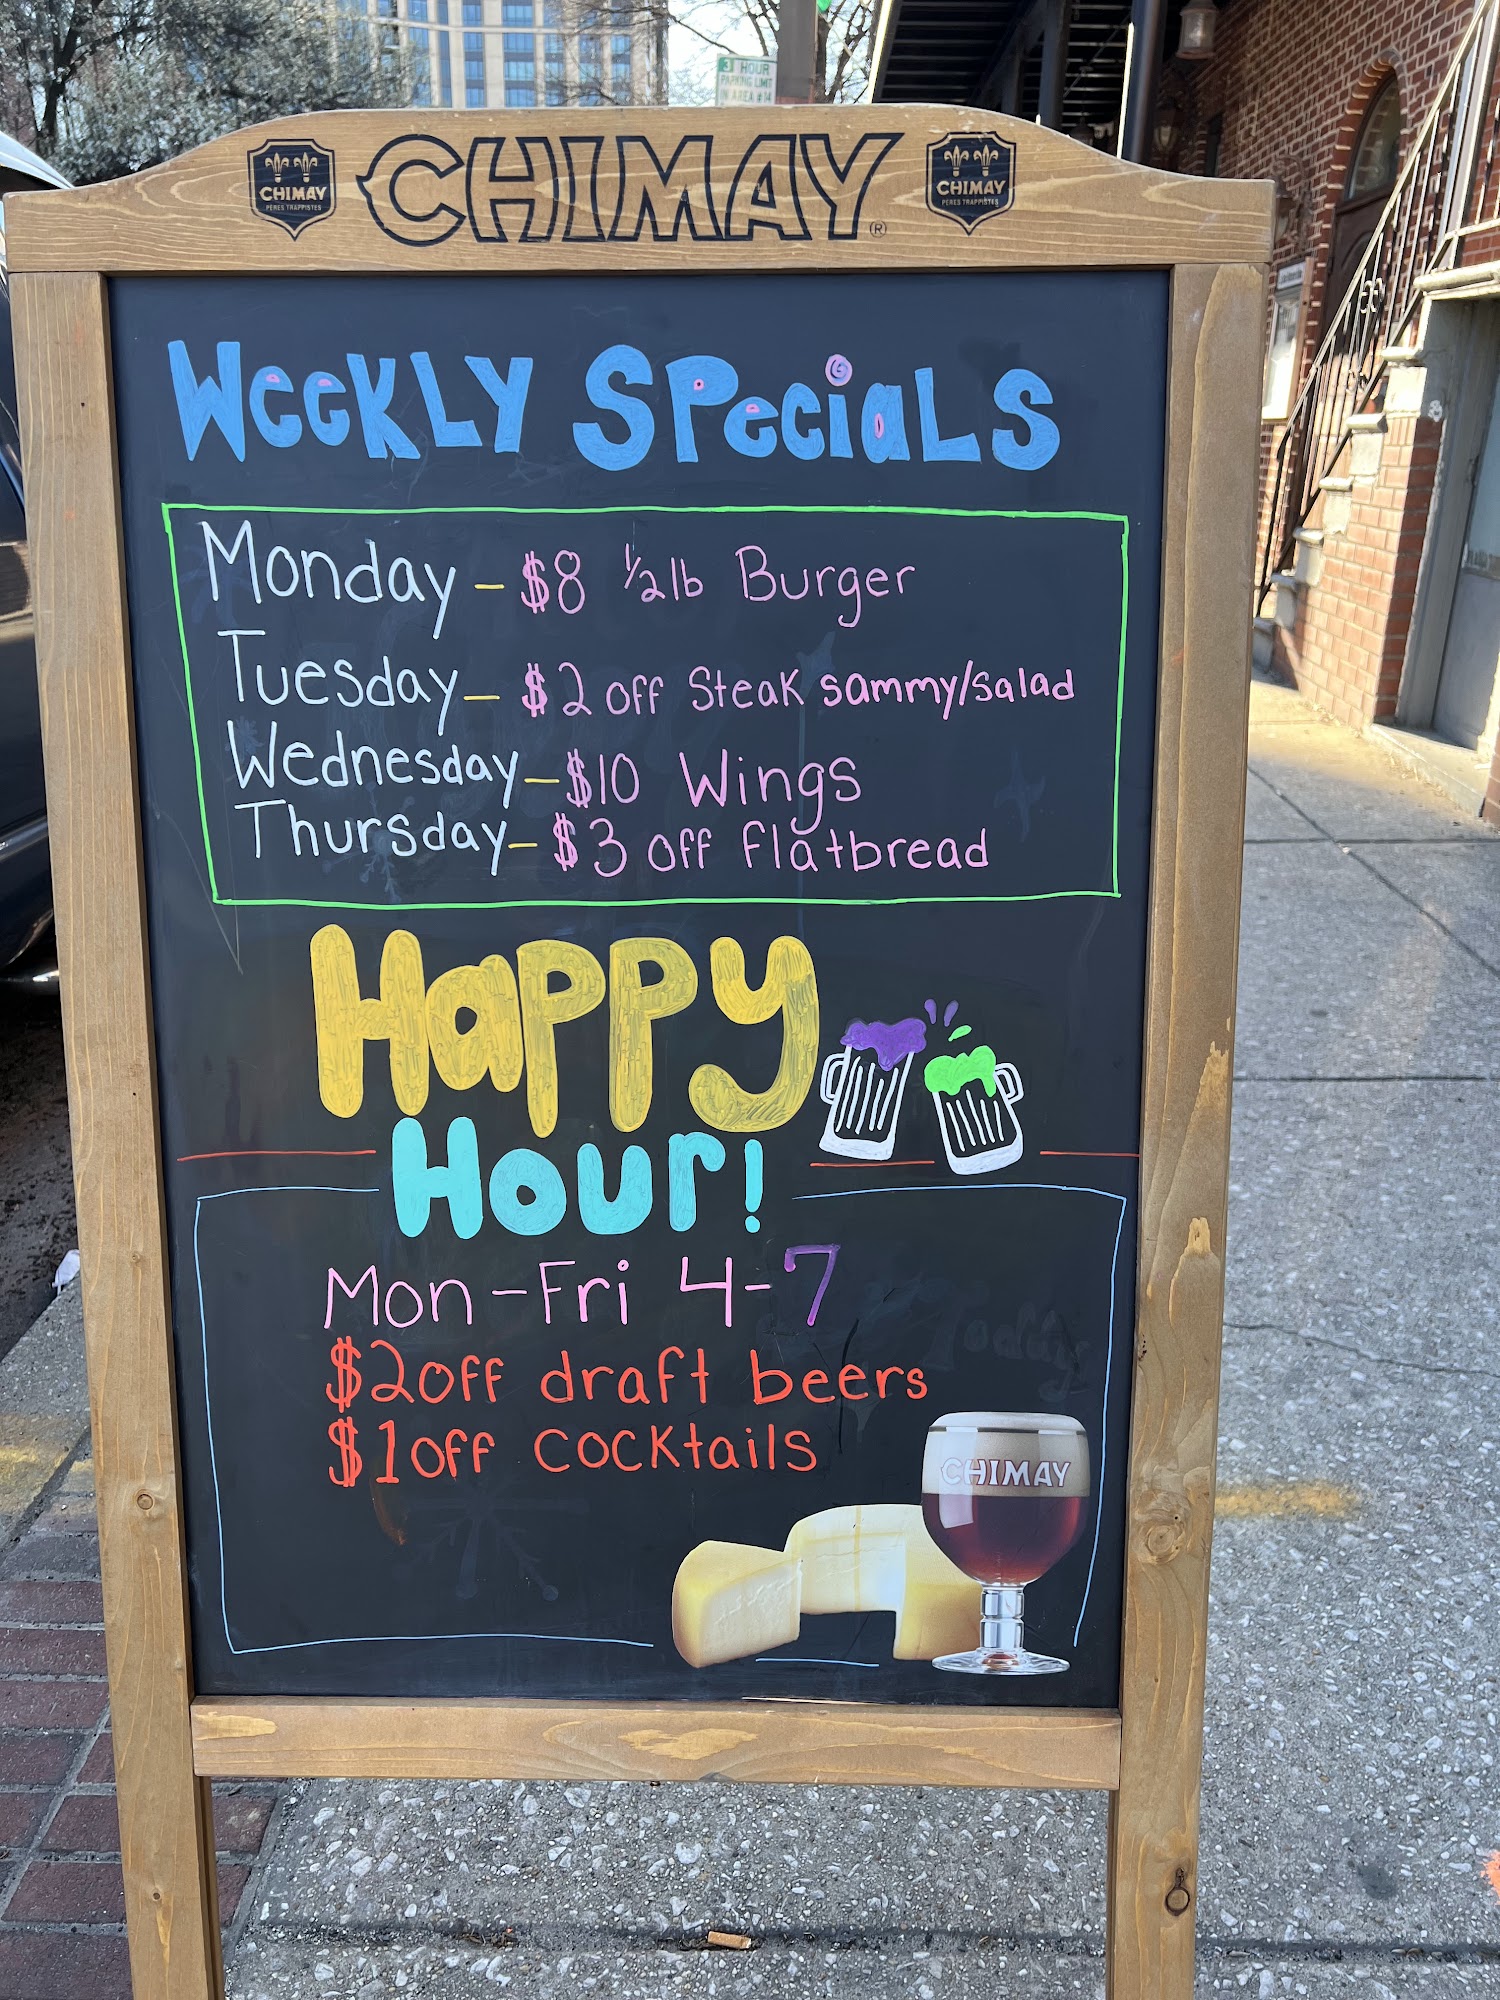 3 HOUR
PARKING LIMIT
IN AREA #14
CHIMAY
PÈRES TRAPPISTES
CHIMAY®
CHIMAY
PÈRES TRAPPISTES
WeeKLY SPeciaLS
Monday - $8 1/2lb Burger
Tuesday - $2 off Steak sammy/salad
Wednesday - $10 Wings
Thursday - $3 off flatbread
Happy
Hour!
Mon-Fri 4-7
$2 off draft beers
$1 off cocktails
CHIMAY